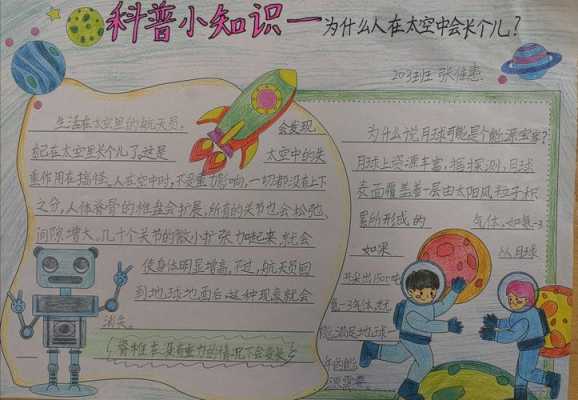 科普小知识—为什么人在太空中会长个儿?
生活在太空里的航天员,会发现
自己在太空里长个儿了,这是太空中的失
重作用在搞怪。人在空中时,不受重力影响,一切都没有上下
之分,人体脊骨的椎盘会扩展,所有的关节也会松弛,
间隙增大,几十个关节的微小扩张力加起来,就会
使身体明显增高,不过,航天员回
到地球地面后,这种现象就会
消失。
(脊椎在没有重力的情况下会变长)
为什么说月球可能是个能源宝库?
月球上资源丰富,据探测,月球
表面覆盖着一层由太阳风粒子积
累所形成的 气体,如氦-3
如果 从月球
共采出1500吨
氦-3气体,就
能满足地球一
年的能
源需要。